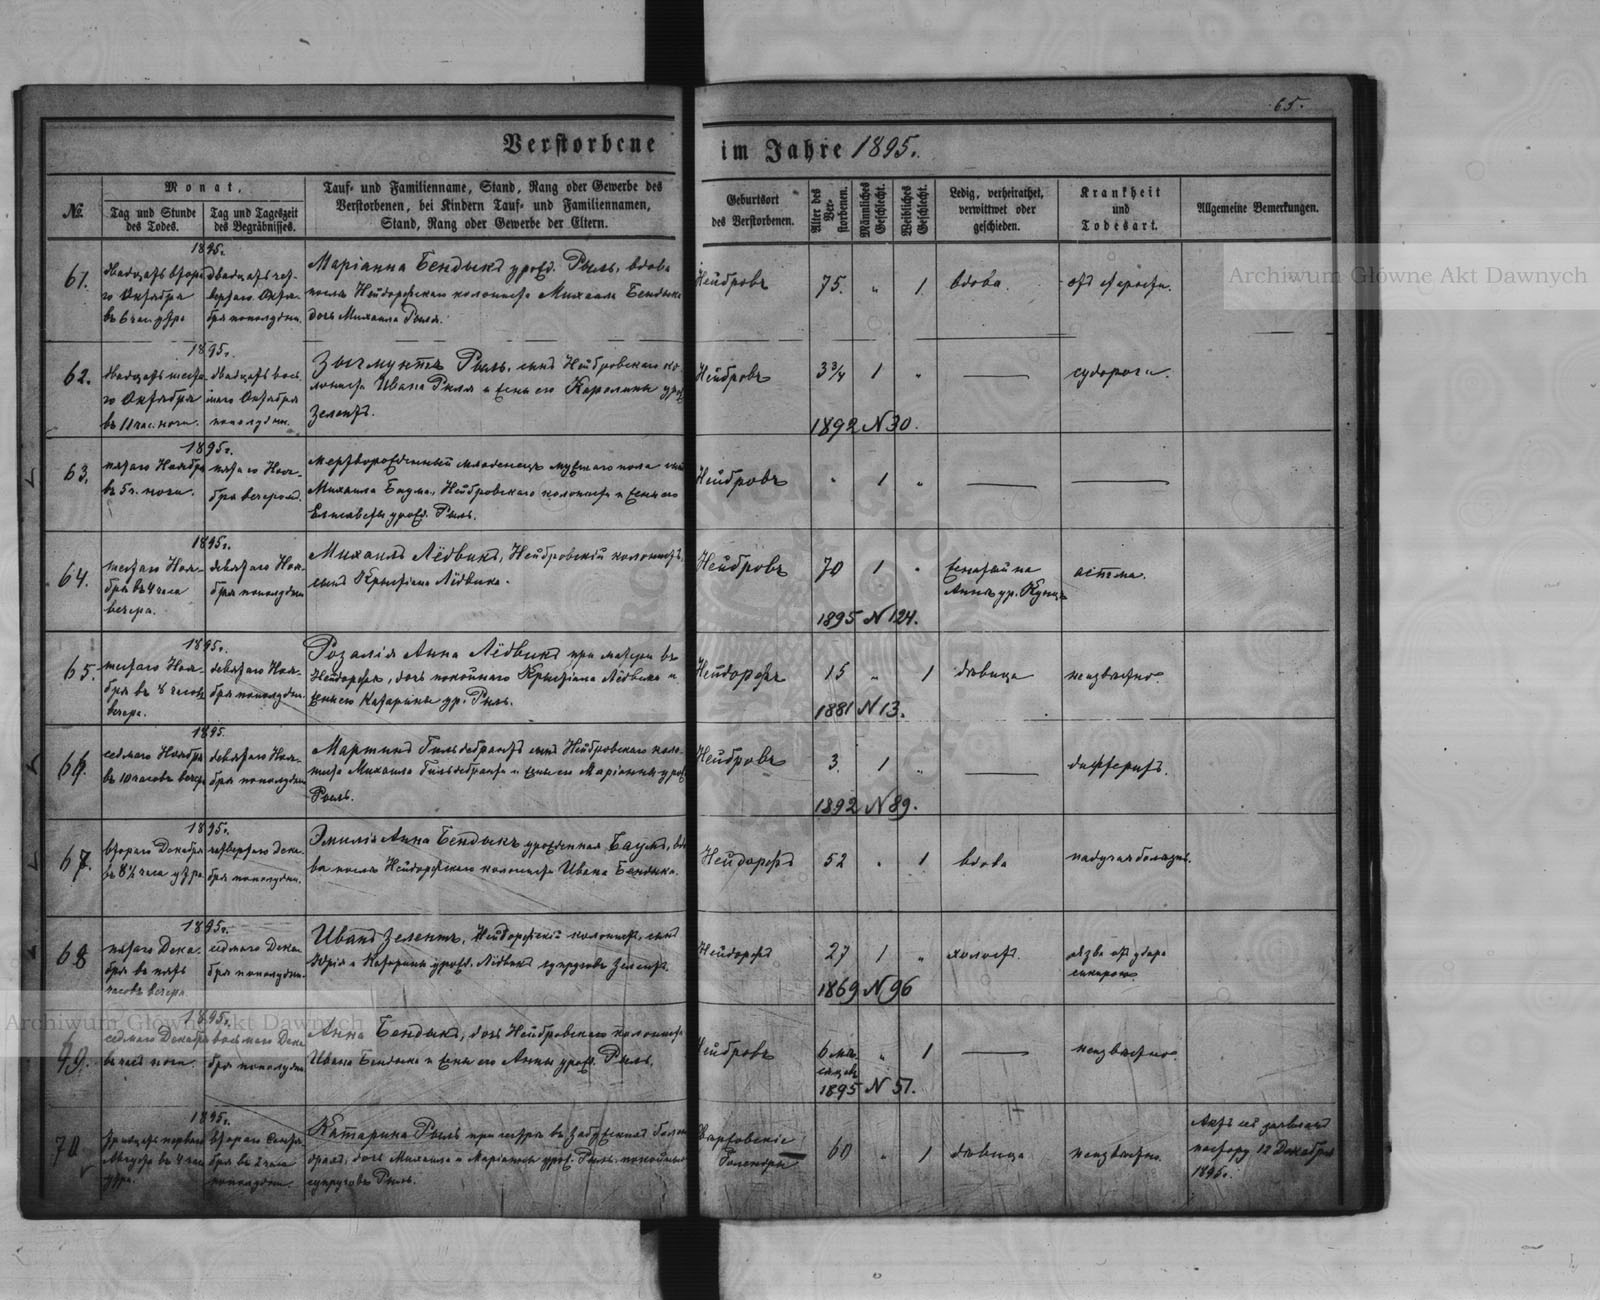 65.
Verstorbene im Jahre 1895.
№
Monat,
Tag und Stunde des Todes.
Tag und Tageszeit des Begräbnisses.
Tauf- und Familienname, Stand, Rang oder Gewerbe des
Verstorbenen, bei Kindern Tauf- und Familiennamen,
Stand, Rang oder Gewerbe der Eltern.
Geburtsort des Verstorbenen.
Alter des Verstorbenen.
Männliches Geschlecht.
Weibliches Geschlecht.
Ledig, verheirathet, verwittwet oder geschieden.
Krankheit und Todesart.
Allgemeine Bemerkungen.
Archiwum Główne Akt Dawnych
61.
1895.
двадцать втора-
го Октября
въ 6 час. утра
двадцать чет-
вертаго Октя-
бря пополудни.
Маріанна Бендыкъ урожд. Рыль, вдова
послѣ Нейдорфскаго колониста Михаила Бендыка
дочь Михаила Рыля.
Нейбровъ
75.
"
1
вдова.
отъ старости.
62.
1895.
двадцать шеста-
го Октября
въ 11 час. ночи.
двадцать вось-
маго Октября
пополудни.
Зыгмунтъ Рыль, сынъ Нейбровскаго ко-
лониста Ивана Рыля и жены его Каролины урожд.
Зелентъ.
Нейбровъ
3 3/4
1
"
судороги.
1892 N 30.
63.
1895.
пятаго Ноября
въ 5 ч. ночи.
пятаго Ноя-
бря вечеромъ.
Мертворожденный младенецъ мужскаго пола сынъ
Михаила Баума, Нейбровскаго колониста и жены его
Елисаветы урожд. Рыль.
Нейбровъ
"
1
"
64.
1895.
шестаго Ноя-
бря въ 4 часа
вечера.
девятаго Ноя-
бря пополудни
Михаилъ Лёдвикъ, Нейбровскій колонистъ,
сынъ Крыстіана Лёдвика.
Нейбровъ
70
1
"
женатый на
Аннѣ ур. Кунцъ
астма.
1895 N 124.
65.
1895.
шестаго Ноя-
бря въ 8 часовъ
вечера.
девятаго Ноя-
бря пополудни.
Розалія Анна Лёдвикъ при матери въ
Нейдорфѣ, дочь покойнаго Крыстіана Лёдвика и
жены его Катарины ур. Рыль.
Нейдорфъ
15
"
1
дѣвица
неизвѣстно.
1881 N 13.
66.
1895.
седмаго Ноября
въ 10 часовъ вечера
девятаго Ноя-
бря пополудни
Мартинъ Гильдебрантъ сынъ Нейбровскаго коло-
ниста Михаила Гильдебранта и жены его Маріанны урожд.
Рыль.
Нейбровъ
3.
1
"
дифтеритъ.
1892 N 89.
67.
1895.
втораго Декабря
въ 8½ часа утра
четвертаго Дека-
бря пополудни.
Эмилія Анна Бендыкъ урожденная Баумъ, вдо-
ва послѣ Нейдорфскаго колониста Ивана Бендыка.
Нейдорфъ
52
"
1
вдова
падучая болѣзнь.
68
1895.
пятаго Дека-
бря въ пять
часовъ вечера
седмаго Дека-
бря пополудни.
Иванъ Зелентъ, Нейдорфскій колонистъ, сынъ
Юрія и Катарины урожд. Лёдвикъ супруговъ Зелентъ.
Нейдорфъ
27
1
"
холостъ.
язва отъ удара
1869 N 96
69.
1895.
седмаго Декабря
въ часъ ночи.
восьмаго Дека-
бря пополудни
Анна Бендыкъ, дочь Нейбровскаго колониста
Ивана Бендыка и жены его Анны урожд. Рыль.
Нейбровъ
6 мѣ-
сяцевъ
"
1
неизвѣстно
1895 N 51.
Archiwum Główne Akt Dawnych
70
1895.
тридцать перваго
Августа въ 4 часа
утра.
втораго Сентя-
бря въ 2 часа
пополудни.
Катарина Рыль при сестрѣ въ Забужскихъ Голен-
драхъ, дочь Михаила и Маріанны урожд. Рыль покойныхъ
супруговъ Рыль.
Голендры
60
"
1
дѣвица.
неизвѣстно.
Актъ сей заявленъ
пастору 12 Декабря
1895 г.